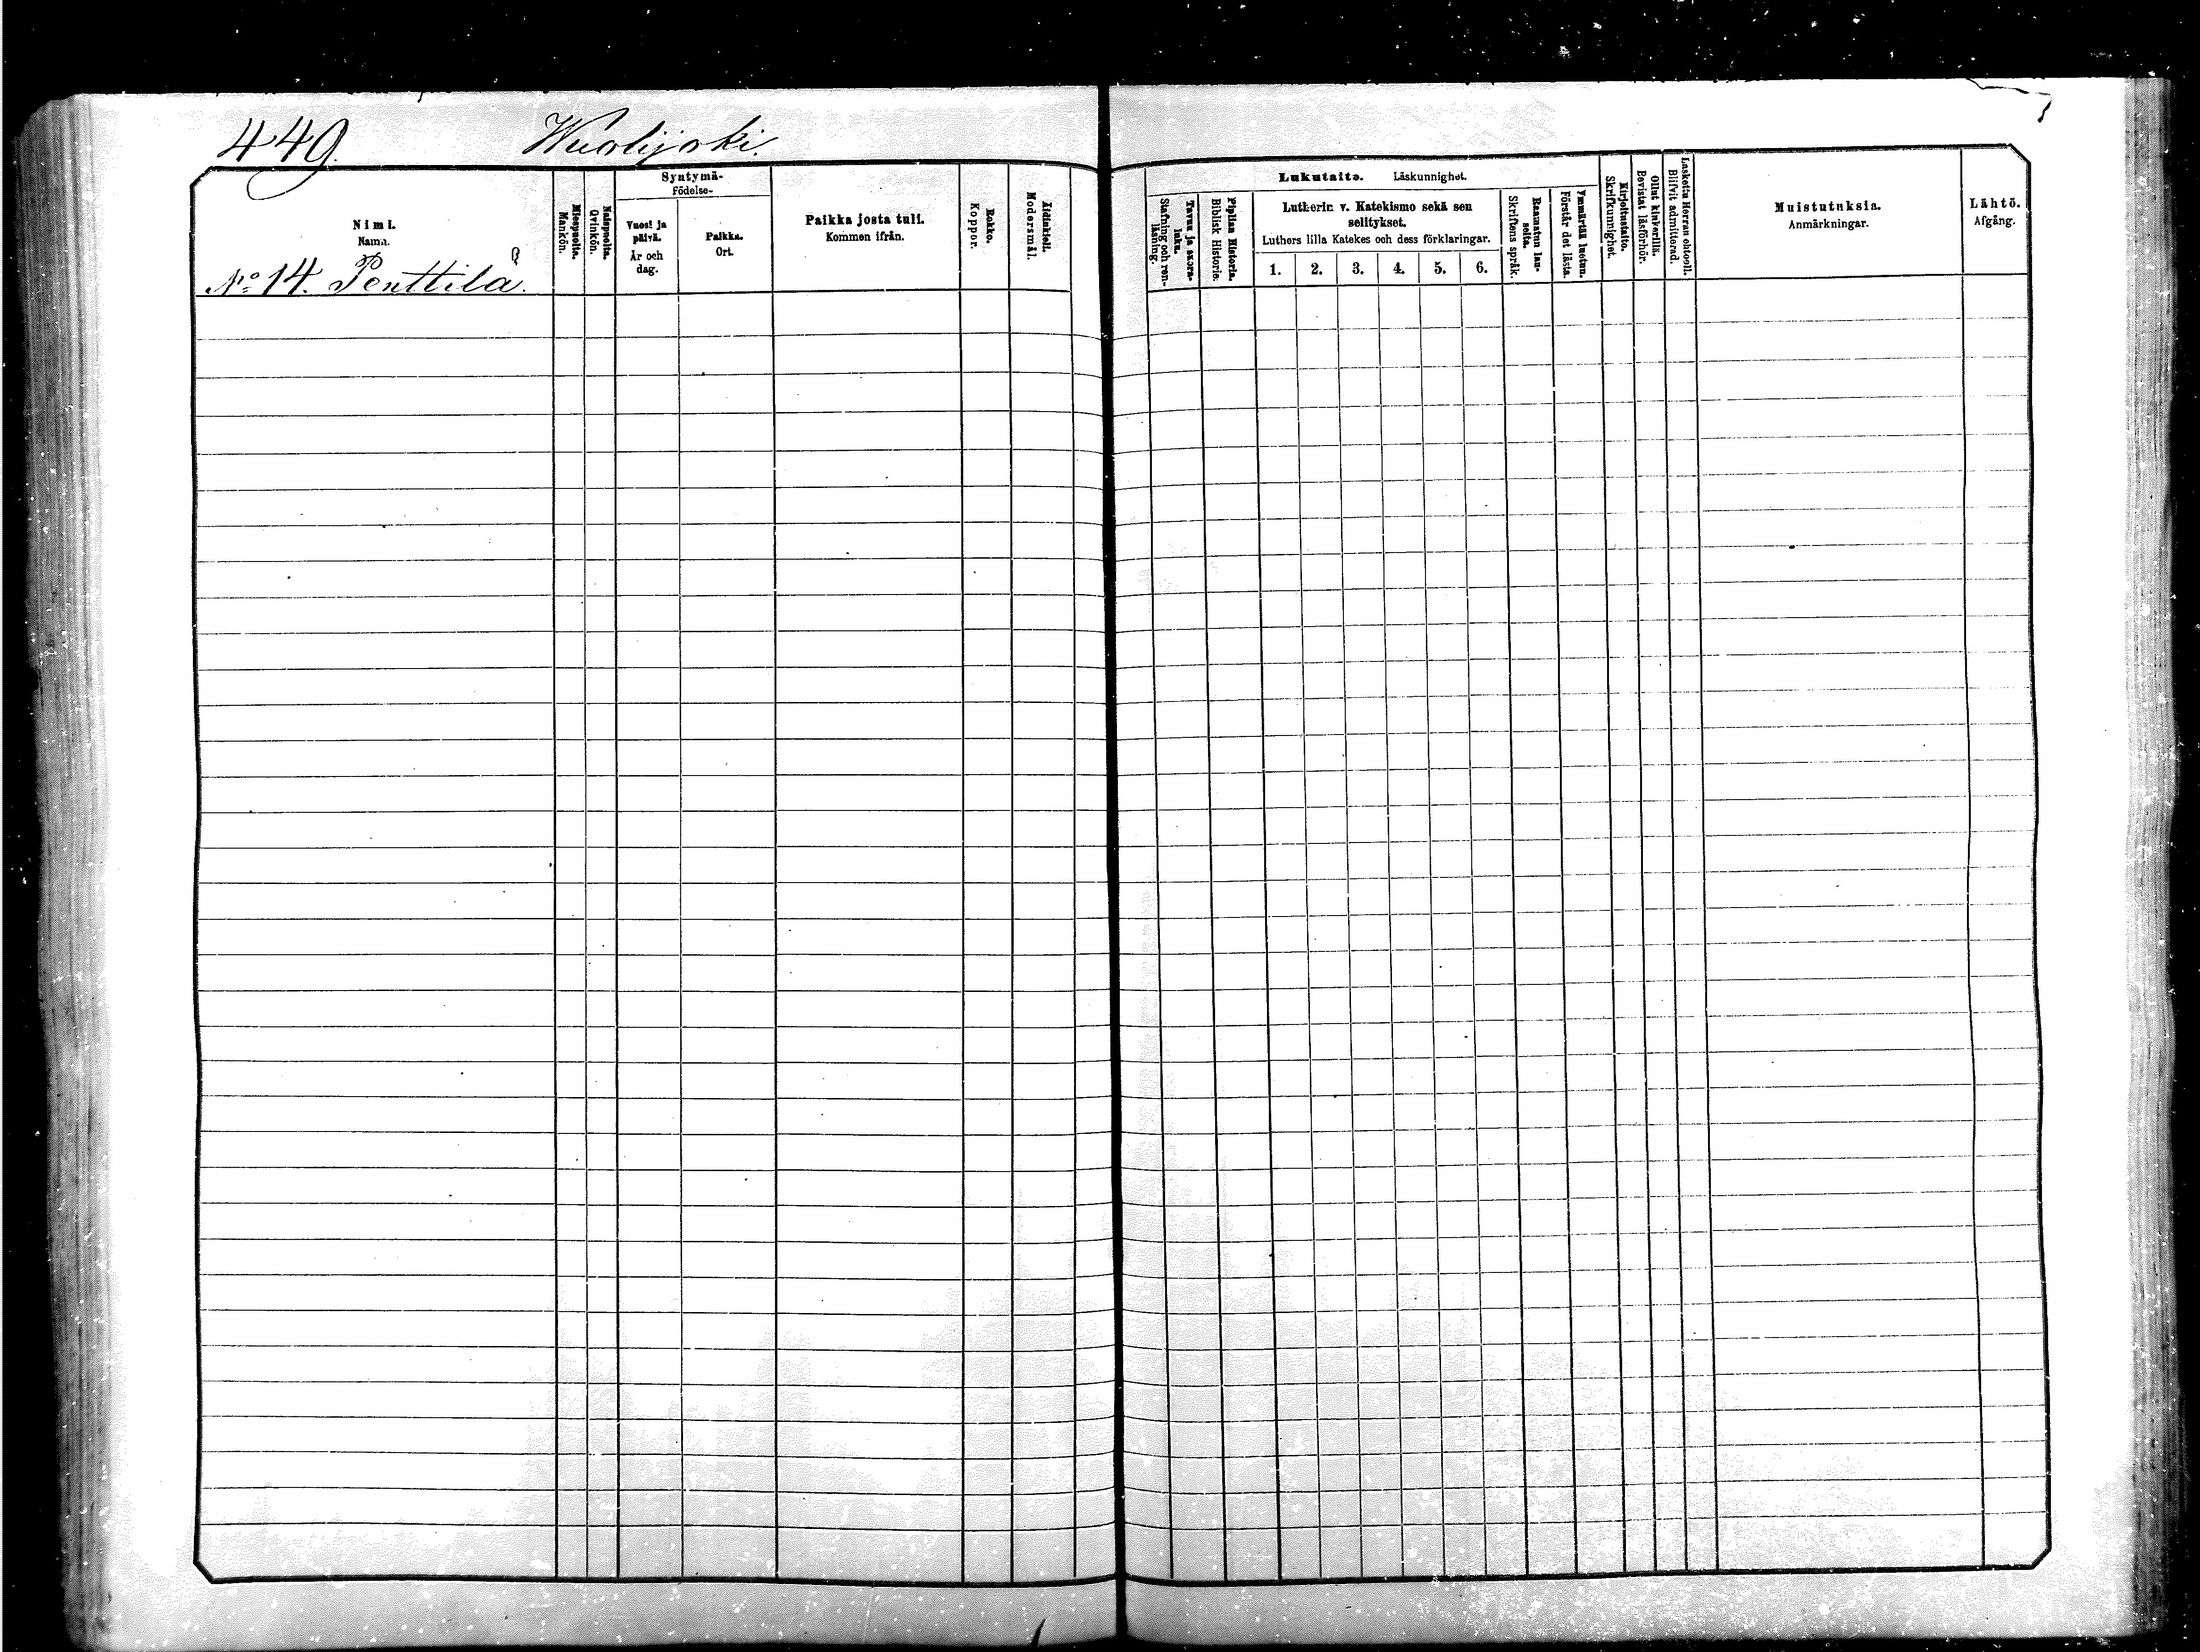 449. Wuolijoki.
Nimi.
Namn.
No 14. Penttilä.
Miespuolia.
Mankön.
Naispuolia.
Qvinkön.
Syntymä-
Födelse-
Vuosi ja
päivä.
År och
dag.
Paikka.
Ort.
Paikka josta tuli.
Kommen ifrån.
Rokko.
Koppor.
Äidinkieli.
Modersmål.
Lukutaito. Läskunnighet.
Tavuu ja suora-
luku.
Stafning och ren-
läsning.
Piplian Historia.
Biblisk Historie.
Lutherin v. Katekismo sekä sen
selitykset.
Luthers lilla Katekes och dess förklaringar.
1. 2. 3. 4. 5. 6.
Raamatun lau-
seita.
Skriftens språk.
Ymmärtää luetun.
Förstår det lästa.
Kirjoitustaito.
Skrifkunnighet.
Ollut kinkerillä.
Bevistat läsförhör.
Laskettu Herran ehtoolł.
Blifvit admitterad.
Muistutuksia.
Anmärkningar.
Lähtö.
Afgång.